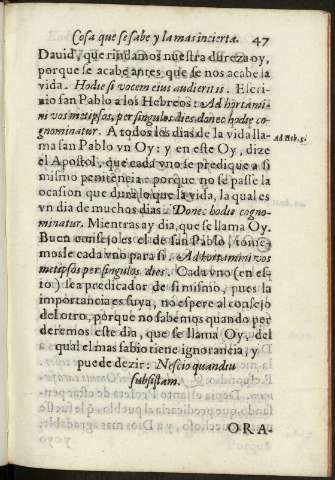 Cosa que se sabe y la mas incierta. 47
Dauid, que rindamos nuestra dureza oy,
porque se acabe antes que se nos acabe la
vida. Hodie si vocem eius audieritis. Escri-
uio san Pablo a los Hebreos: Ad hortami-
ni vos metipsos, per singulos dies, donec hodie co-
gnominatur. A todos los dias de la vida lla-
Ad Heb. 3.
ma san Pablo vn Oy; y en este Oy, dize
el Apostol, que cada vno se predique a si
mismo penitencia: porque no se passe la
ocasion que dura lo que la vida, la qual es
vn dia de muchos dias. Donec hodie cogno-
minatur. Mientras ay dia, que se llama Oy.
Buen consejo es el de san Pablo, tome-
mosle cada vno para si. Ad hortamini vos
metipsos per singulos dies. Cada vno (en es-
to) sea predicador de si mismo, pues la
importancia es suya, no espere al consejo
del otro, porque no sabemos quando per
deremos este dia, que se llama Oy, del
qual el mas sabio tiene ignorancia, y
puede dezir: Nescio quandiu
subsistam.
ORA-